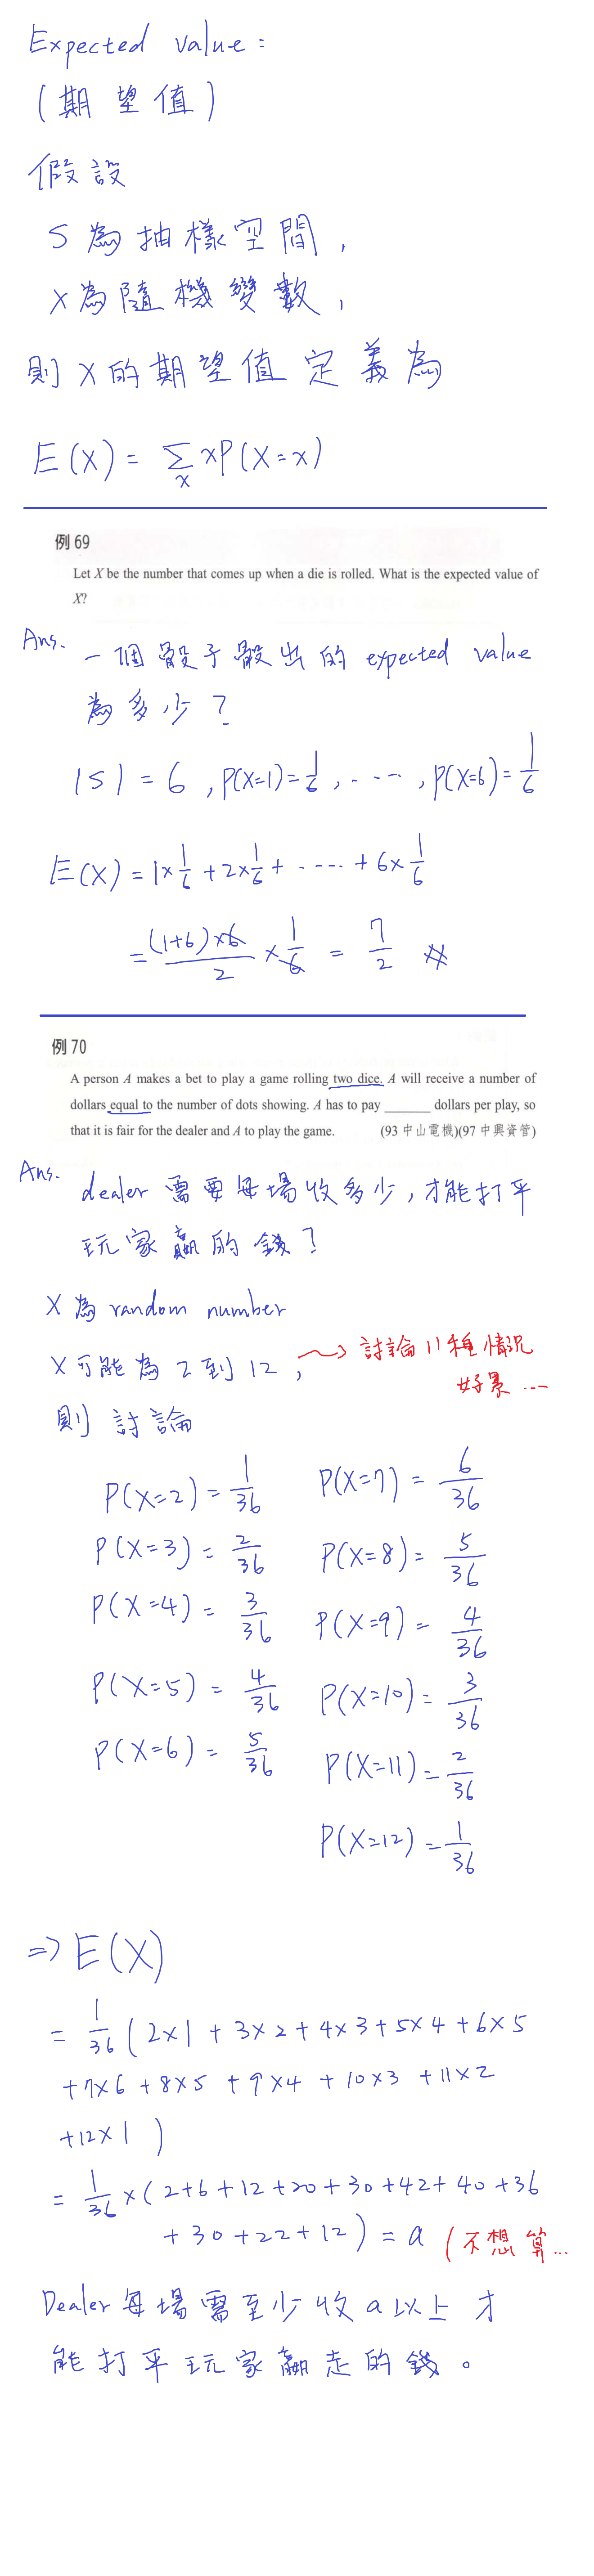 Expected value:
(期望值)
假設
S為抽樣空間,
X為隨機變數,
則X的期望值定義為
E(X) = Σ_x xP(X=x)
例 69
Let X be the number that comes up when a die is rolled. What is the expected value of
X?
Ans. 一個骰子骰出的 expected value
為多少?
|S| = 6, P(X=1)=1/6, ····, P(X=6)=1/6
E(X) = 1×1/6 + 2×1/6 + ····· + 6×1/6
= (1+6)×6/2 × 1/6 = 7/2 #
例 70
A person A makes a bet to play a game rolling two dice. A will receive a number of
dollars equal to the number of dots showing. A has to pay ______ dollars per play, so
that it is fair for the dealer and A to play the game. (93 中山電機)(97 中興資管)
Ans. dealer 需要每場收多少,才能打平
玩家贏的錢?
X 為 random number
X可能為 2 到 12, → 討論 11種情況
好累 ...
則討論
P(X=2) = 1/36 P(X=7) = 6/36
P(X=3) = 2/36 P(X=8) = 5/36
P(X=4) = 3/36 P(X=9) = 4/36
P(X=5) = 4/36 P(X=10) = 3/36
P(X=6) = 5/36 P(X=11) = 2/36
P(X=12) = 1/36
=> E(X)
= 1/36 ( 2×1 + 3×2 + 4×3 + 5×4 + 6×5
+ 7×6 + 8×5 + 9×4 + 10×3 + 11×2
+ 12×1 )
= 1/36 × ( 2+6+12+20+30+42+40+36
+30+22+12 ) = a (不想算...
Dealer 每場需至少收 a 以上才
能打平玩家贏走的錢。